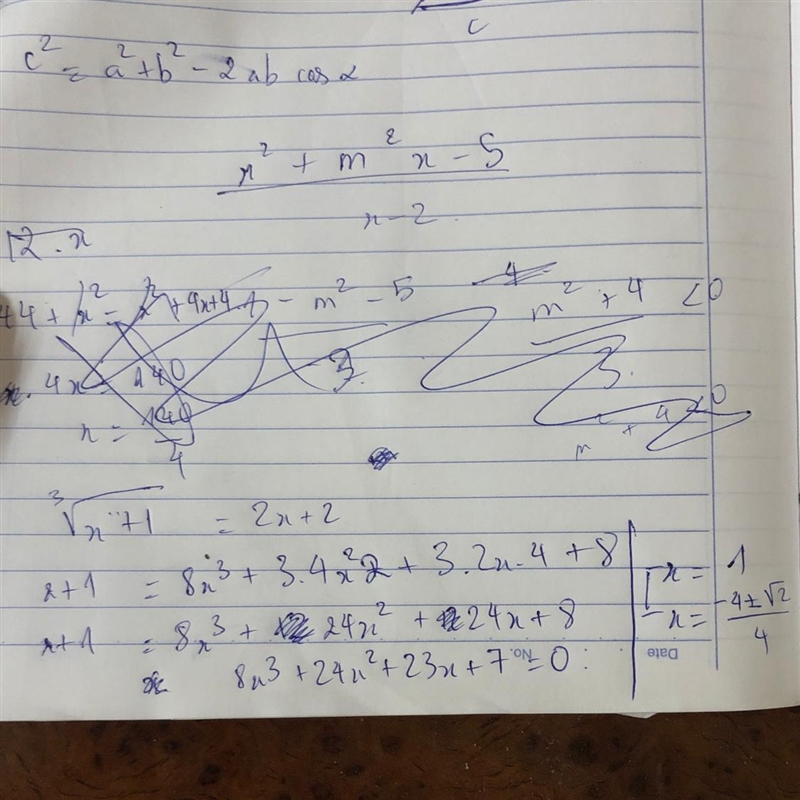 c
c² = a² + b² - 2ab cos α
x² + m² x - 5
x - 2
√2 . x
44 + x² = x² + 4x + 4 - m² - 5
4
m² + 4 < 0
4x = 140
x = 140/4
3
m + 4 < 0
³√x+1 = 2x + 2
x + 1 = 8x³ + 3.4x²2 + 3.2x.4 + 8
x + 1 = 8x³ + 24x² + 24x + 8
8x³ + 24x² + 23x + 7 = 0
x = 1
x = -4 ± √2 / 4
No.
Date